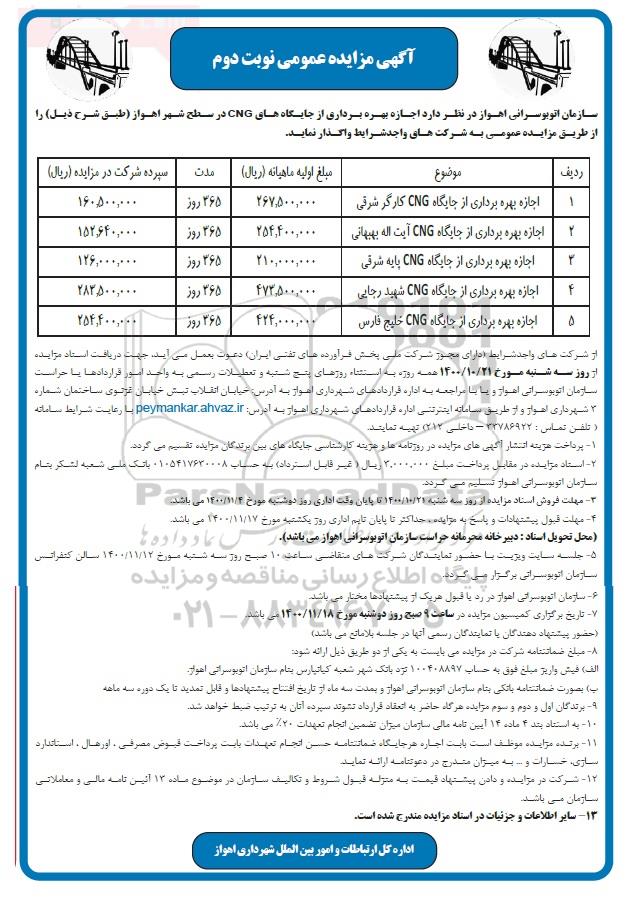 آگهی مزایده عمومی نوبت دوم
سازمان اتوبوسرانی اهواز در نظر دارد اجازه بهره برداری از جایگاه های CNG در سطح شهر اهواز (طبق شرح ذیل) را
از طریق مزایده عمومی به شرکت های واجدشرایط واگذار نماید.
ردیف موضوع مبلغ اولیه ماهیانه (ریال) مدت سپرده شرکت در مزایده (ریال)
۱ اجازه بهره برداری از جایگاه CNG کارگر شرقی ۲۶۷,۵۰۰,۰۰۰ ۳۶۵ روز ۱۶۰,۵۰۰,۰۰۰
۲ اجازه بهره برداری از جایگاه CNG آیت اله بهبهانی ۲۵۴,۴۰۰,۰۰۰ ۳۶۵ روز ۱۵۲,۶۴۰,۰۰۰
۳ اجازه بهره برداری از جایگاه CNG پایه شرقی ۲۱۰,۰۰۰,۰۰۰ ۳۶۵ روز ۱۲۶,۰۰۰,۰۰۰
۴ اجازه بهره برداری از جایگاه CNG شهید رجایی ۴۷۳,۵۰۰,۰۰۰ ۳۶۵ روز ۲۸۳,۵۰۰,۰۰۰
۵ اجازه بهره برداری از جایگاه CNG خلیج فارس ۴۲۴,۰۰۰,۰۰۰ ۳۶۵ روز ۲۵۴,۴۰۰,۰۰۰
از شرکت های واجدشرایط (دارای مجوز شرکت ملی پخش فرآورده های نفتی ایران) دعوت بعمل می آید، جهت دریافت اسناد مزایده
از روز سه شنبه مورخ ۱۴۰۰/۱۰/۲۱ همه روزه به استثناء روزهای پنج شنبه و تعطیلات رسمی به واحد امور قراردادها یا حراست
سازمان اتوبوسرانی اهواز و یا با مراجعه به اداره قراردادهای شهرداری اهواز به آدرس: خیابان انقلاب نبش خیابان غزنوی ساختمان شماره
۳ شهرداری اهواز و از طریق سامانه اینترنتی اداره قراردادهای شهرداری اهواز به آدرس: peymankar.ahvaz.ir با رعایت شرایط سامانه
( تلفن تماس : ۳۳۷۸۶۹۲۲ – داخلی ۲۱۲) تهیه نمایند.
۱- پرداخت هزینه انتشار آگهی های مزایده در روزنامه ها و هزینه کارشناسی جایگاه های بین برندگان مزایده تقسیم می گردد.
۲- اسناد مزایده در مقابل پرداخت مبلغ ۳,۰۰۰,۰۰۰ ریال ( غیر قابل استرداد) به حساب ۰۱۰۵۴۱۷۶۳۰۰۰۸ بانک ملی شعبه لشکر بنام
سازمان اتوبوسرانی اهواز تسلیم می گردد.
۳- مهلت فروش اسناد مزایده از روز سه شنبه ۱۴۰۰/۱۰/۲۱ تا پایان وقت اداری روز دوشنبه مورخ ۱۴۰۰/۱۱/۴ می باشد.
۴- مهلت قبول پیشنهادات و پاسخ به مزایده ، حداکثر تا پایان تایم اداری روز یکشنبه مورخ ۱۴۰۰/۱۱/۱۷ می باشد.
(محل تحویل اسناد : دبیرخانه محرمانه حراست سازمان اتوبوسرانی اهواز می باشد).
۵- جلسه سایت ویزیت با حضور نمایندگان شرکت های متقاضی ساعت ۱۰ صبح روز سه شنبه مورخ ۱۴۰۰/۱۱/۱۲ سالن کنفرانس
سازمان اتوبوسرانی برگزار می گردد.
۶- سازمان اتوبوسرانی اهواز در رد یا قبول هریک از پیشنهادها مختار می باشد.
۷- تاریخ برگزاری کمیسیون مزایده در ساعت ۹ صبح روز دوشنبه مورخ ۱۴۰۰/۱۱/۱۸ می باشد.
(حضور پیشنهاد دهندگان یا نمایندگان رسمی آنها در جلسه بلامانع می باشد)
۸- مبلغ ضمانتنامه شرکت در مزایده می بایست به یکی از دو طریق ذیل ارائه شود:
الف) فیش واریز مبلغ فوق به حساب ۱۰۰۴۰۸۸۹۷ نزد بانک شهر شعبه کیانپارس بنام سازمان اتوبوسرانی اهواز.
ب) بصورت ضمانتنامه بانکی بنام سازمان اتوبوسرانی اهواز و بمدت سه ماه از تاریخ افتتاح پیشنهادها و قابل تمدید تا یک دوره سه ماهه
۹- برندگان اول و دوم و سوم مزایده هرگاه حاضر به انعقاد قرارداد نشوند سپرده آنان به ترتیب ضبط خواهد شد.
۱۰- به استناد بند ۴ ماده ۱۴ آیین نامه مالی سازمان میزان تضمین انجام تعهدات ۲۰٪ می باشد.
۱۱- برنده مزایده موظف است بابت اجاره هرجایگاه ضمانتنامه حسن انجام تعهدات بابت پرداخت قبوض مصرفی ، اورهال ، استاندارد
سازی، خسارات و ... به میزان مندرج در دعوتنامه ارائه نماید.
۱۲- شرکت در مزایده و دادن پیشنهاد قیمت به منزله قبول شروط و تکالیف سازمان در موضوع ماده ۱۳ آئین نامه مالی و معاملاتی
سازمان می باشد.
۱۳- سایر اطلاعات و جزئیات در اسناد مزایده مندرج شده است.
اداره کل ارتباطات و امور بین الملل شهرداری اهواز
ParsNamadData
پایگاه اطلاع رسانی مناقصه و مزایده
۰۲۱-۸۸۳۴۹۶۷۰-۵